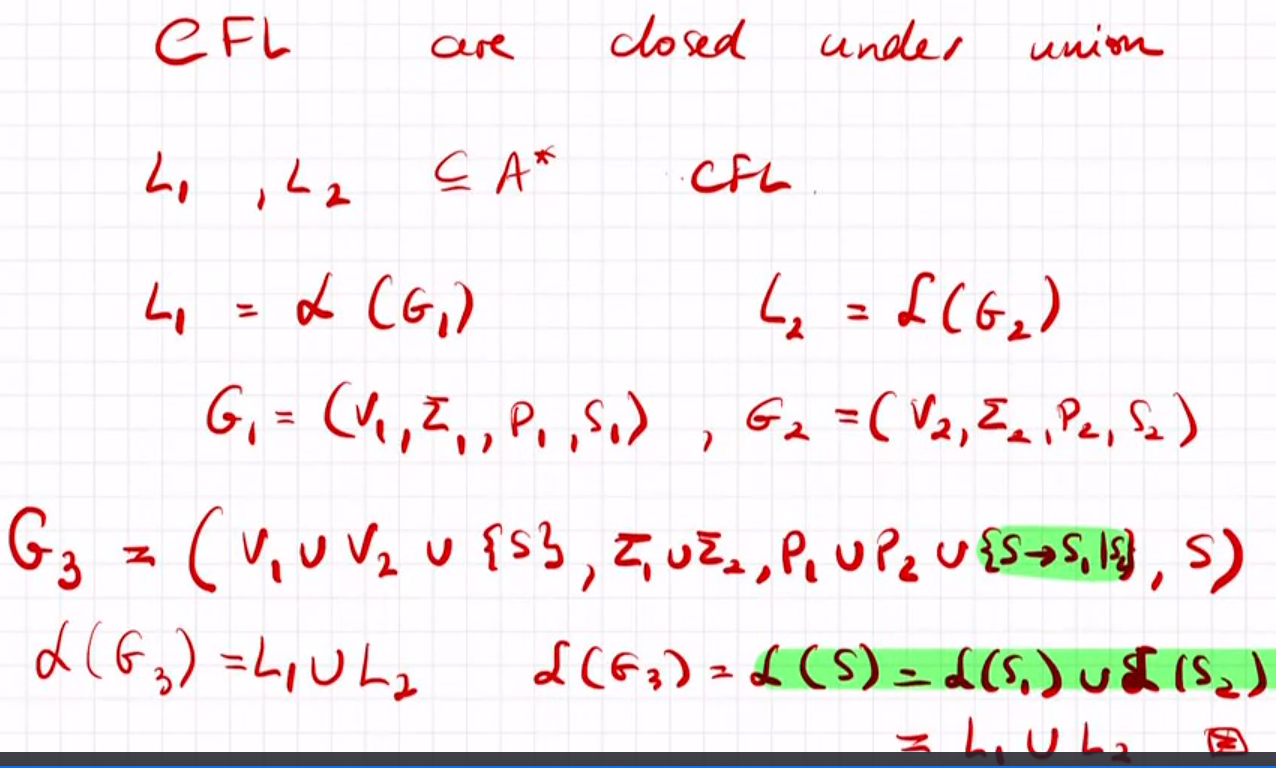 CFL are closed under union
L₁ , L₂ ⊆ A* CFL .
L₁ = ℒ (G₁) L₂ = ℒ(G₂)
G₁ = (V₁, Σ₁, P₁, S₁) , G₂ = (V₂, Σ₂, P₂, S₂)
G₃ = (V₁ ∪ V₂ ∪ {S}, Σ₁ ∪ Σ₂, P₁ ∪ P₂ ∪ {S→S₁|S₂}, S)
ℒ(G₃) = L₁ ∪ L₂ ℒ(G₃) = ℒ(S) = ℒ(S₁) ∪ ℒ(S₂)
= L₁ ∪ L₂